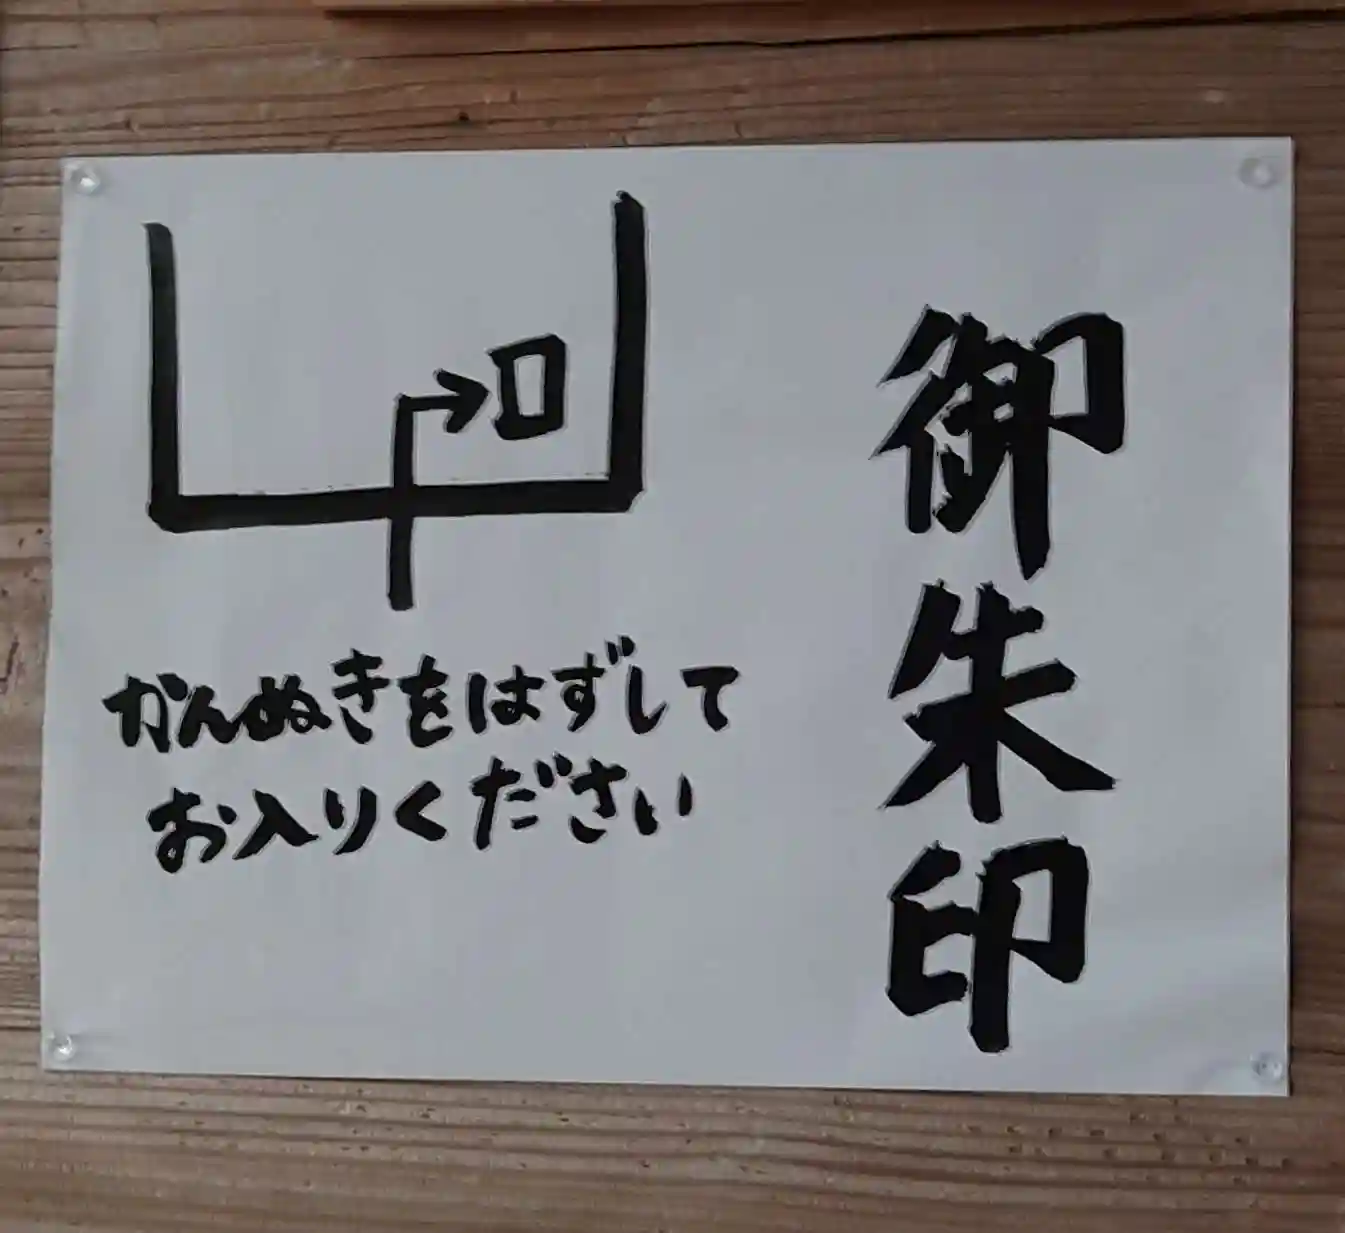 御朱印
かんぬきをはずして
お入りください